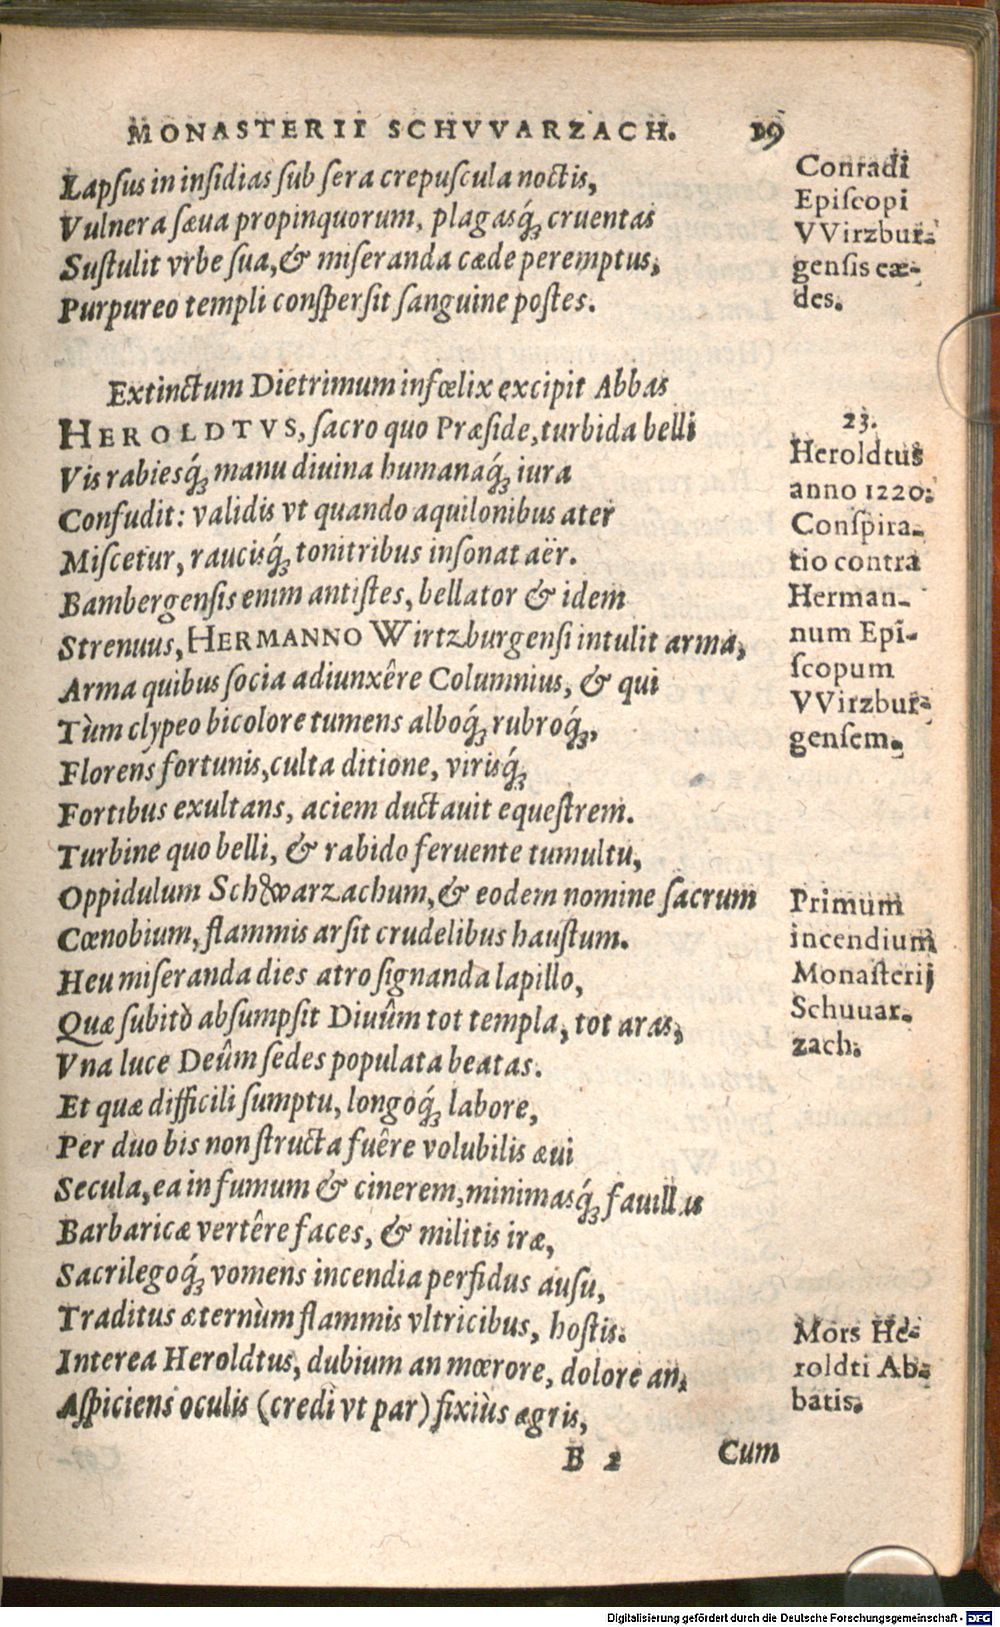 MONASTERII SCHVVARZACH. 19
Lapsus in insidias sub sera crepuscula noctis,
Vulnera sæva propinquorum, plagasq́ꝫ cruentas
Sustulit vrbe sua, & miseranda cæde peremptus,
Purpureo templi conspersit sanguine postes.
Conradi
Episcopi
VVirzbur-
gensis cæ-
des.
Extinctum Dietrimum infœlix excipit Abbas
HEROLDTVS, sacro quo Præside, turbida belli
Vis rabiesq́ꝫ manu diuina humanaq́ꝫ iura
Confudit: validis vt quando aquilonibus ater
Miscetur, raucisq́ꝫ tonitribus insonat aër.
Bambergensis enim antistes, bellator & idem
Strenuus, HERMANNO Wirtzburgensi intulit arma,
Arma quibus socia adiunxêre Columnius, & qui
Tùm clypeo bicolore tumens alboq́ꝫ rubroq́ꝫ,
Florens fortunis, culta ditione, virisq́ꝫ
Fortibus exultans, aciem ductauit equestrem.
Turbine quo belli, & rabido feruente tumultu,
Oppidulum Schwarzachum, & eodem nomine sacrum
Cœnobium, flammis arsit crudelibus haustum.
Heu miseranda dies atro signanda lapillo,
Quæ subitò absumpsit Diuûm tot templa, tot aras,
Vna luce Deûm sedes populata beatas.
Et quæ difficili sumptu, longoq́ꝫ labore,
Per duo bis non structa fuêre volubilis æui
Secula, ea in fumum & cinerem, minimasq́ꝫ fauillas
Barbaricæ vertêre faces, & militis iræ,
Sacrilegoq́ꝫ vomens incendia perfidus ausu,
Traditus æternùm flammis vltricibus, hostis.
Interea Heroldtus, dubium an mœrore, dolore an,
Aspiciens oculis (credi vt par) fixiùs ægris,
23.
Heroldtus
anno 1220.
Conspira-
tio contra
Herman-
num Epi-
scopum
VVirzbur-
gensem.
Primum
incendium
Monasterij
Schuuar-
zach.
Mors He-
roldti Ab-
batis.
B 2 Cum
Digitalisierung gefördert durch die Deutsche Forschungsgemeinschaft - DFG